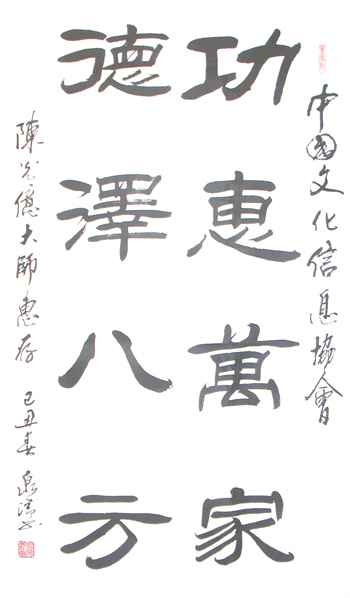 中国文化信息協會
功惠萬家
德澤八方
陳光億大師惠存
己丑春